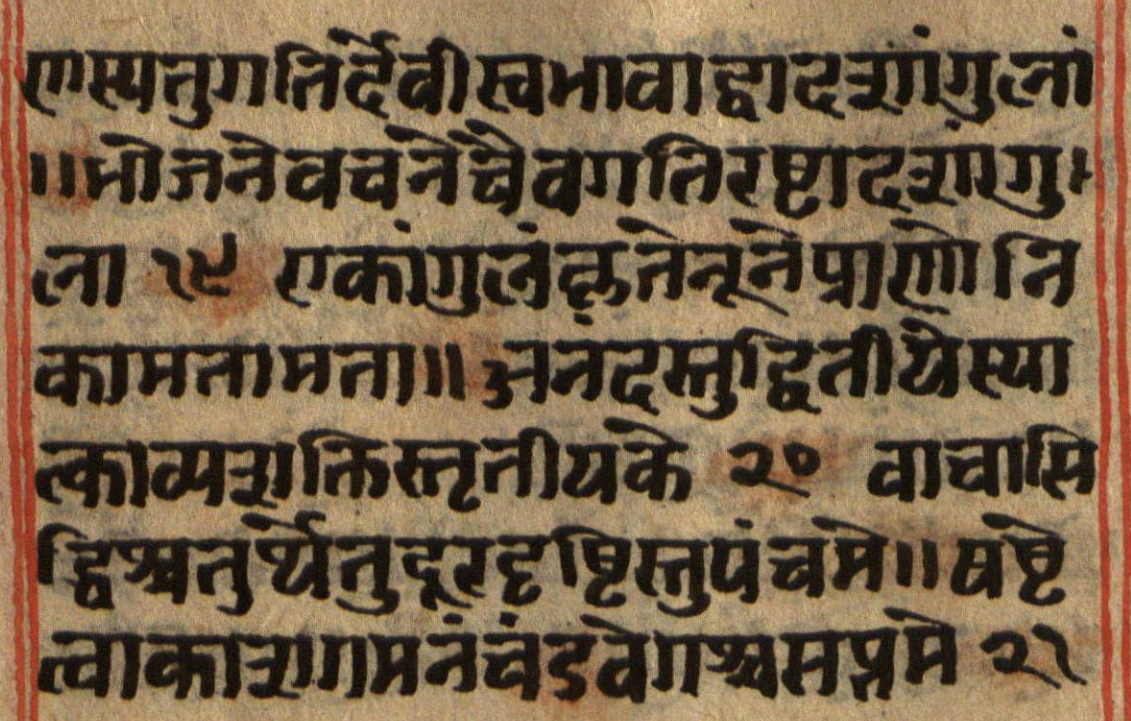 णस्य तु गतिर्देवी स्वभावाद्द्वादशांगुला
॥भोजने वचने चैव गतिरष्टादशांगु
ला १९ एकांगुलं कृते नूने प्राणे नि
कामता मता॥ अनंदस्तु द्वितीये स्या
त्काव्यशक्तिस्तृतीयके २० वाचासि
द्धिश्चतुर्थे तु दूरदृष्टिस्तु पंचमे॥षष्टे
त्वाकाशगमनं चंडवेगश्च सप्तमे २१